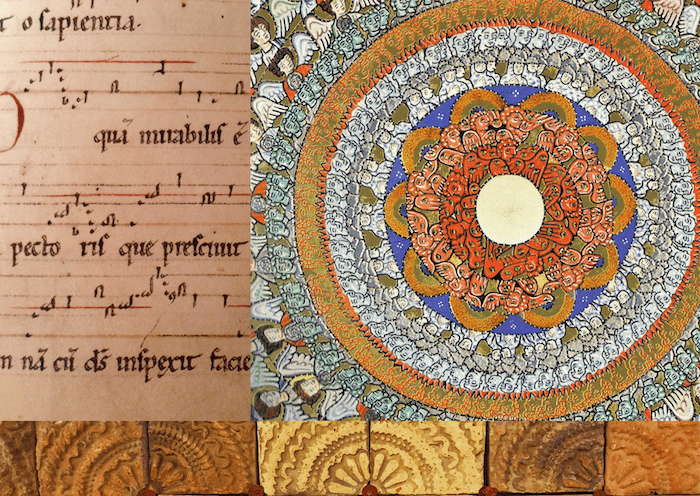 t o sapientia.
quā mirabilis ē
pecto ris que presciuit
nā cū d̄s inspexit facie